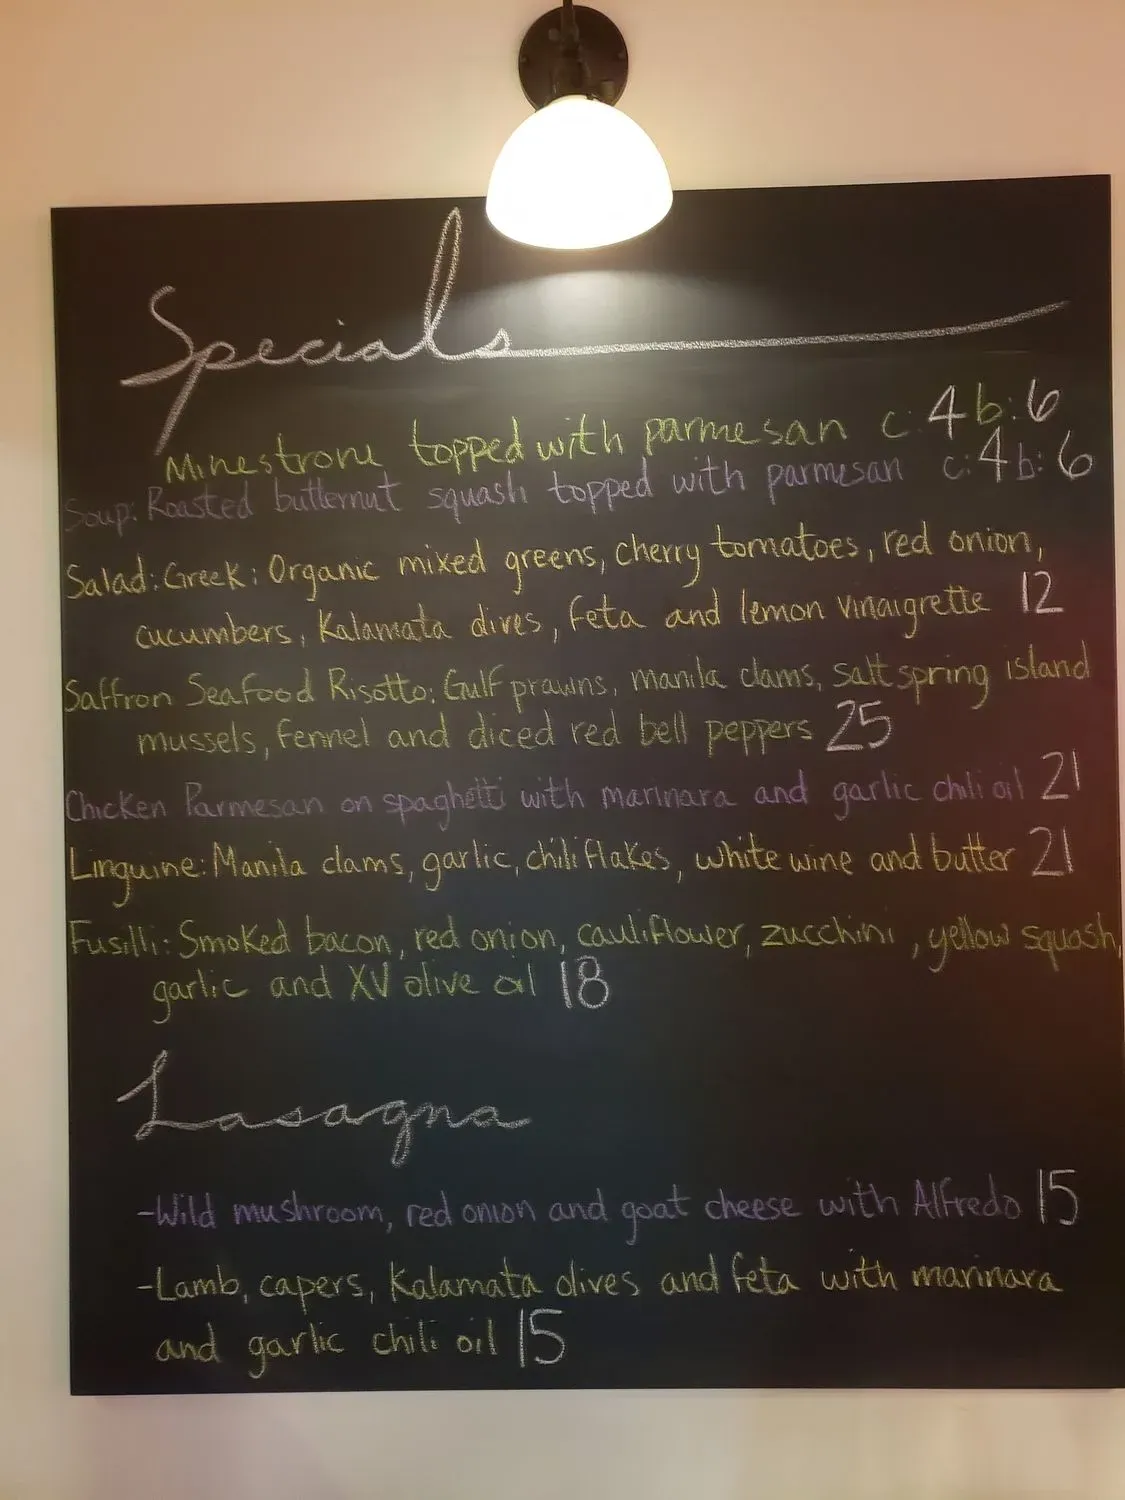 Specials
Minestrone topped with parmesan c:4 b:6
Soup: Roasted butternut squash topped with parmesan c:4 b:6
Salad: Greek: Organic mixed greens, cherry tomatoes, red onion,
cucumbers, Kalamata olives, feta and lemon vinaigrette 12
Saffron Seafood Risotto: Gulf prawns, manila clams, salt spring island
mussels, fennel and diced red bell peppers 25
Chicken Parmesan on spaghetti with marinara and garlic chili oil 21
Linguine: Manila clams, garlic, chili flakes, white wine and butter 21
Fusilli: Smoked bacon, red onion, cauliflower, zucchini, yellow squash,
garlic and XV olive oil 18
Lasagna
-Wild mushroom, red onion and goat cheese with Alfredo 15
-Lamb, capers, Kalamata olives and feta with marinara
and garlic chili oil 15